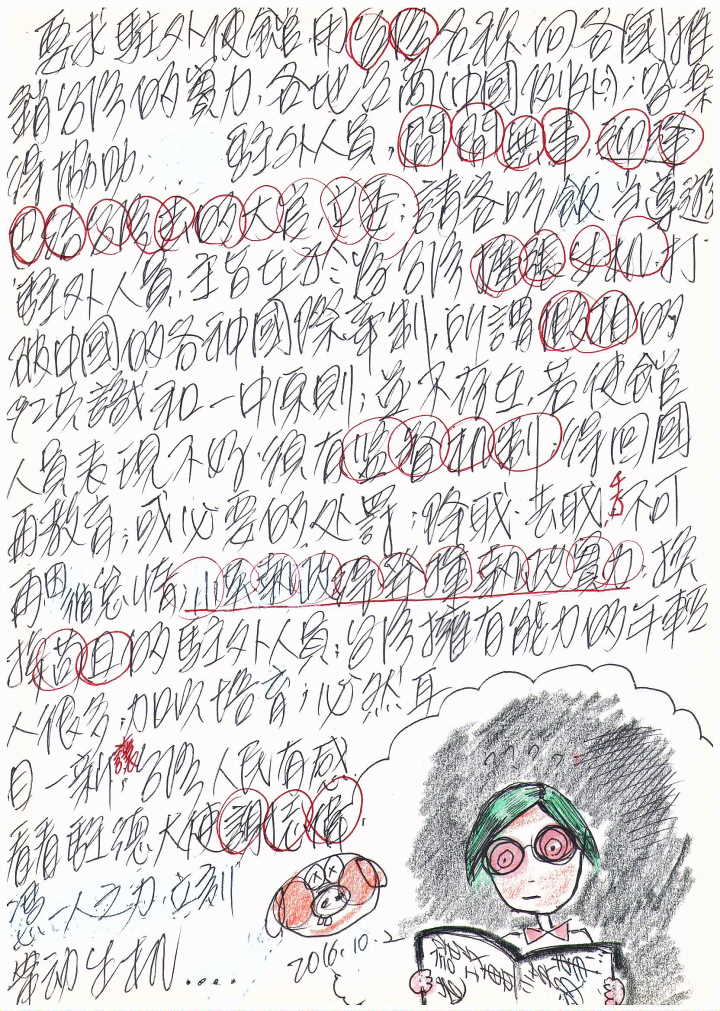 要求駐外使館,用台灣名称,向各國推
銷台灣的實力,各地台商(中國例外);
得協助; 駐外人員,閒閒無事,
的大官,立委;請客吃飯當導遊
駐外人員,主旨在於:為台灣擴張生机;打
破中國的各种國際牽制,所謂假相的
92共識和一中原則;並不存在,若使館
人員表現不好,須有监督机制;得回國
再教育;或必要的处罰;降职·去职,千不可
再
换苗目的駐外人員;台灣擁有能力的年輕
人很多;加以培育;必然耳
目一新,讓台灣人民有感
看看駐德大使謝志偉,
憑一人之力,立刻
帶动生机.....
2016.10.2